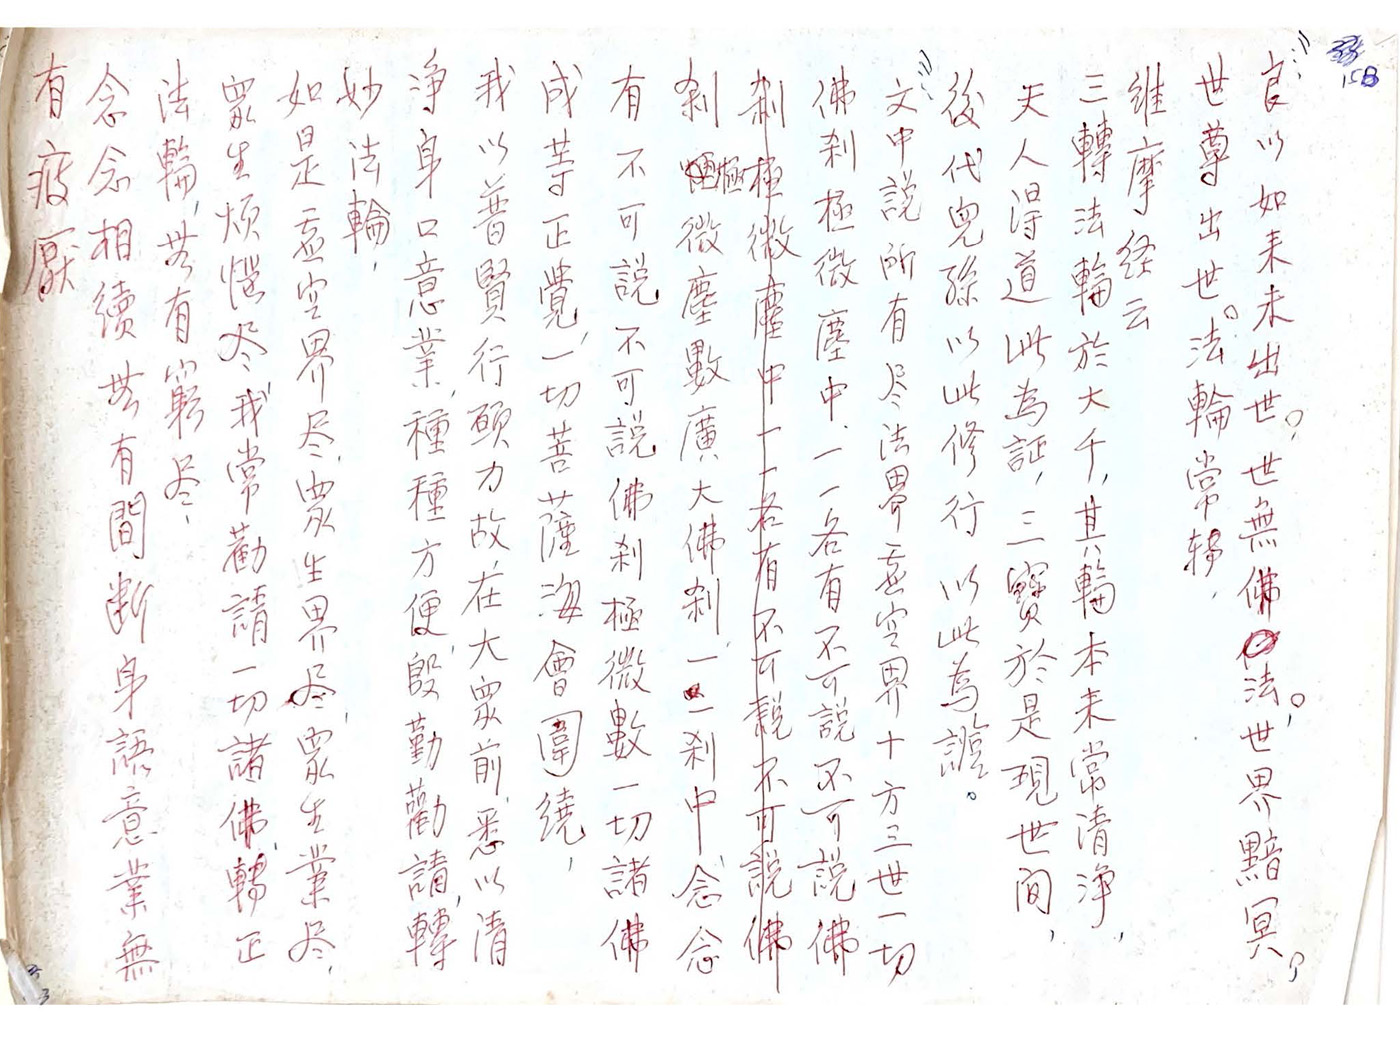 15B
良以如来未出世。世無佛法。世界黯冥。
世尊出世。法輪常轉,
維摩経云
三轉法輪於大千,其輪本来常清浄,
天人得道此為証,三寶於是現世間,
後代兒孫以此修行 以此為證。
文中説所有尽法界虚空界十方三世一切
佛剎極微塵中,一一各有不可説不可説佛
剎極微塵中一一各有不可説不可説佛
剎極微塵數廣大佛剎,一一剎中念念
有不可説不可説佛剎極微數一切諸佛
成等正覺,一切菩薩海會圍繞,
我以普賢行願力故,在大眾前,悉以清
浄身口意業,種種方便,殷勤勸請,轉
妙法輪,
如是虚空界尽,眾生界尽,眾生業尽,
眾生煩惱尽,我常勸請一切諸佛,轉正
法輪,無有窮尽,
念念相續無有間断身語意業無
有疲厭